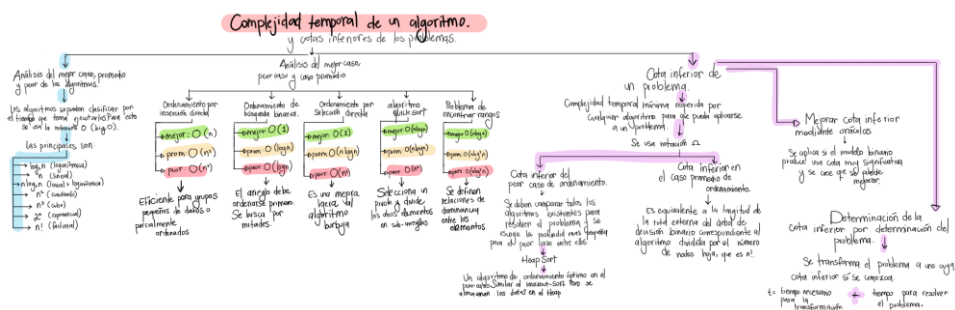 Complejidad temporal de un algoritmo.
y cotas inferiores de los problemas.
Análisis del mejor caso, promedio
y peor de los algoritmos.
Los algoritmos se pueden clasificar por
el tiempo que toma ejecutarlos. Para esto
se usa la notación O (big O).
las principales son
log₂n (logarítmica)
n (lineal)
nlog₂n (lineal + logarítmica)
n² (cuadrado)
n³ (cubo)
2ⁿ (exponencial)
n! (factorial)
Análisis del mejor caso,
peor caso y caso promedio
Ordenamiento por
inserción directa
mejor: O(n)
prom: O(n²)
peor: O(n²)
Eficiente para grupos
pequeños de datos o
parcialmente
ordenados
Ordenamiento de
búsqueda binaria.
mejor: O(1)
prom: O(logn)
peor: O(logn)
El arreglo debe
ordenarse primero
Se busca por
mitades.
Ordenamiento por
selección directa
mejor: O(1)
prom: O(nlogn)
peor: O(n²)
Es una mejora
ligera tal
algoritmo
burbuja
algoritmo
Quick sort
mejor: O(nlogn)
prom: O(nlogn)
peor: O(n²)
Selecciona un
pivote y divide
los otros elementos
en sub-arreglos
Problema de
encontrar rangos
Se definen
relaciones de
dominancia
entre los
elementos
Cota inferior de
un problema.
Complejidad temporal mínima requerida por
cualquier algoritmo para que pueda aplicarse
a un problema.
Se usa notación Ω
Cota inferior del
peor caso de ordenamiento.
Se deben comparar todos los
algoritmos existentes para
resolver el problema, y se
escoge la profundidad más pequeña
para el peor caso entre ellos.
Heap Sort
Un algoritmo de ordenamiento óptimo en el
peor caso. Similar al Knockout-sort. Pero se
almacenan los datos en el Heap
Cota inferior en
el caso promedio de
ordenamiento.
Es equivalente a la longitud de
la ruta externa del árbol de
decisión binario correspondiente al
algoritmo dividida por el número
de nodos hoja, que es n!.
Mejorar cota inferior
mediante oráculos
Se aplica si el modelo binario
produce una cota muy significativa
y se cree que se puede
mejorar.
Determinación de la
cota inferior por determinación del
problema.
Se transforma el problema a uno cuya
cota inferior si se conozca.
t= tiempo necesario
para la
transformación
+
tiempo para resolver
el problema.